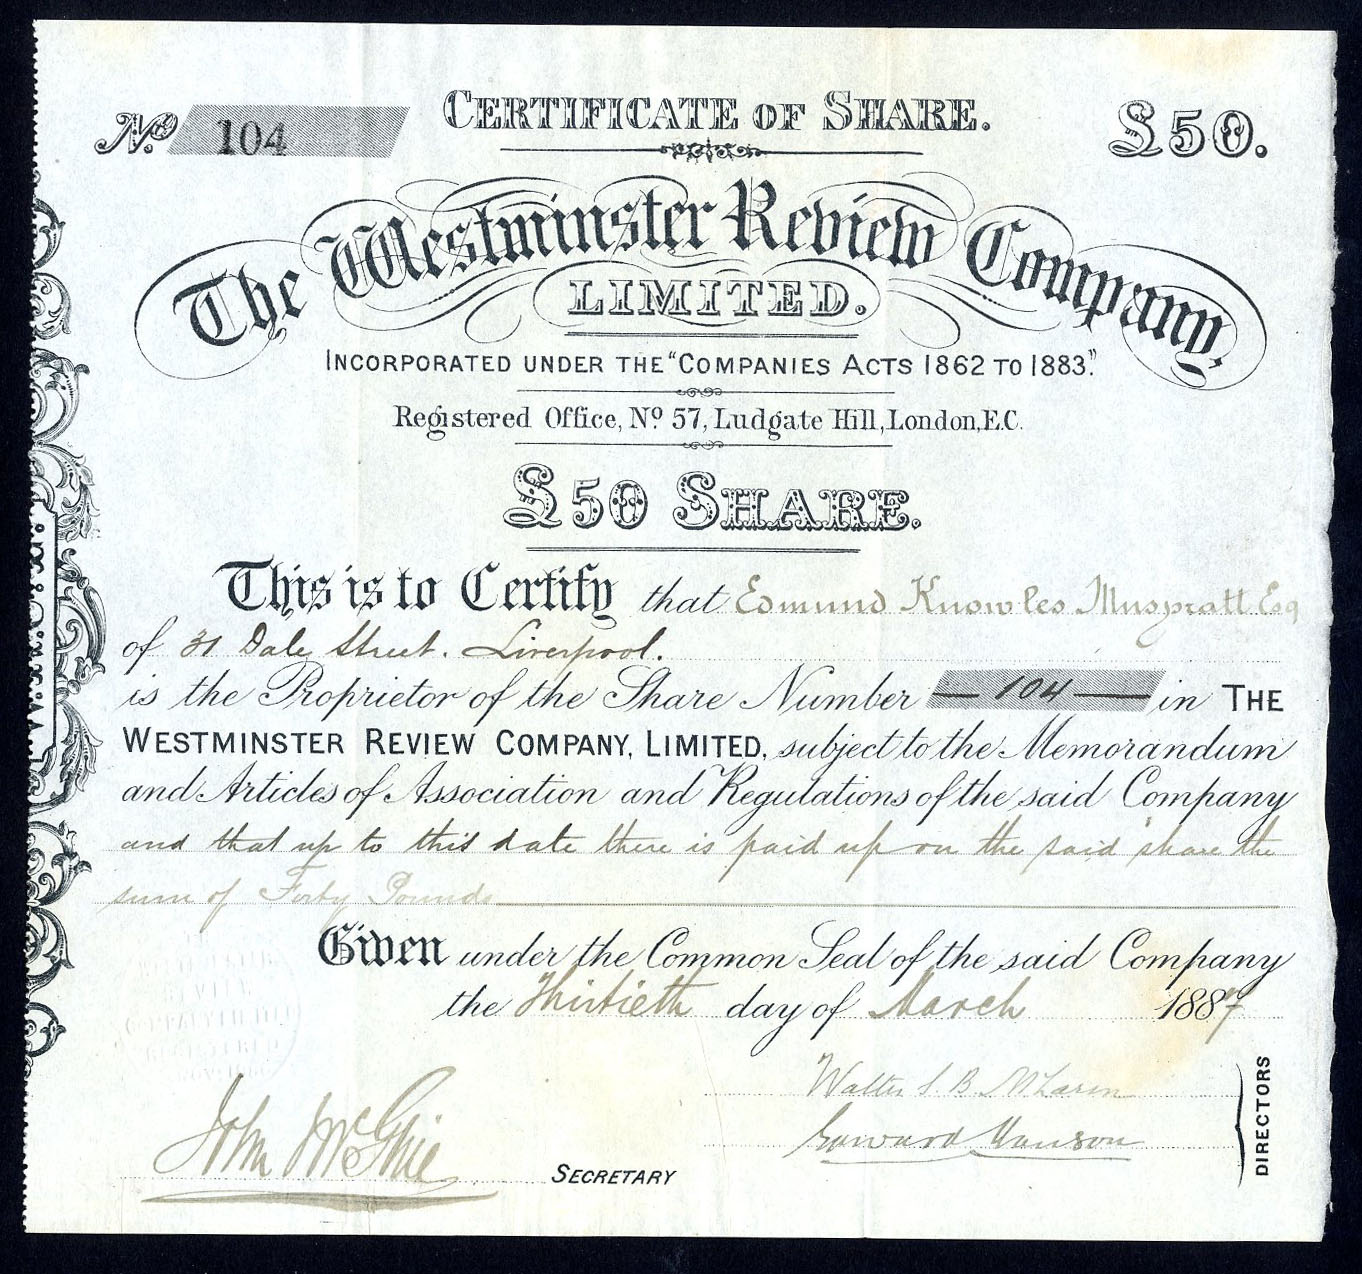 No. 104
CERTIFICATE OF SHARE.
£50.
The Westminster Review Company,
LIMITED.
INCORPORATED UNDER THE "COMPANIES ACTS 1862 TO 1883."
Registered Office, No. 57, Ludgate Hill, London, E.C.
£50 SHARE.
This is to Certify that Edmund Knowles Muspratt Esq
of 31 Dale Street. Liverpool.
is the Proprietor of the Share Number — 104 — in THE
WESTMINSTER REVIEW COMPANY, LIMITED, subject to the Memorandum
and Articles of Association and Regulations of the said Company
and that up to this date there is paid up on the said share the
sum of Forty Pounds
Given under the Common Seal of the said Company
the Thirtieth day of March 1887
Walter S. B. McLaren
John McGhie
SECRETARY
DIRECTORS